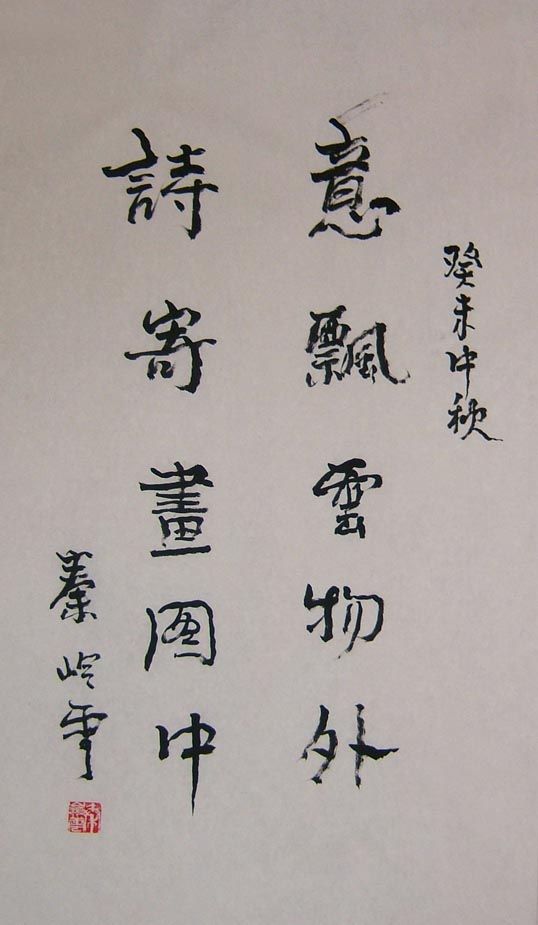 癸未中秋
意飄雲物外
詩寄畫图中
秦岭雪